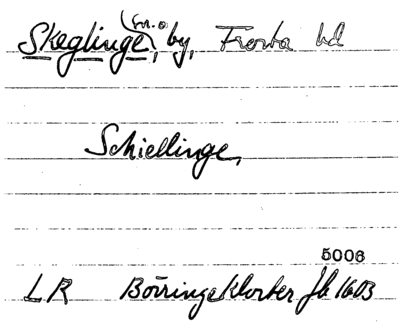 (Sn. o)
Skeglinge, by, Frosta hd
Schiellinge,
5006
LR Börringekloster Jb 1603